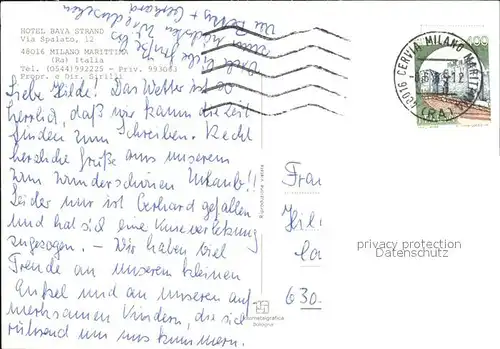 HOTEL BAYA STRAND
Via Spalato, 12
48016 MILANO MARITTIMA
(Ra) Italia
Tel. (0544) 992225 - Priv. 993063
Propr. e Dir. Sirilli
Liebe Hilde! Das Wetter ist so
herrlich, daß wir kaum die Zeit
finden zum Schreiben. Recht
herzliche Grüße aus unserem
wunderschönen Urlaub!!
Leider nur ist Gerhard gefallen
und hat sich eine Knieverletzung
zugezogen. – Wir haben viel
Freude an unserem kleinen
Enkel und an unseren auf-
merksamen Kindern, die sich
rührend um uns kümmern.
Viele liebe Grüße bis
zum nächsten Wiedersehen
Betty + Gerhard
400
48016 CERVIA MILANO MARITTIMA
(RA)
Riproduzione vietata
fotometalgrafica
bologna
Frau
Hil
630
privacy protection
Datenschutz